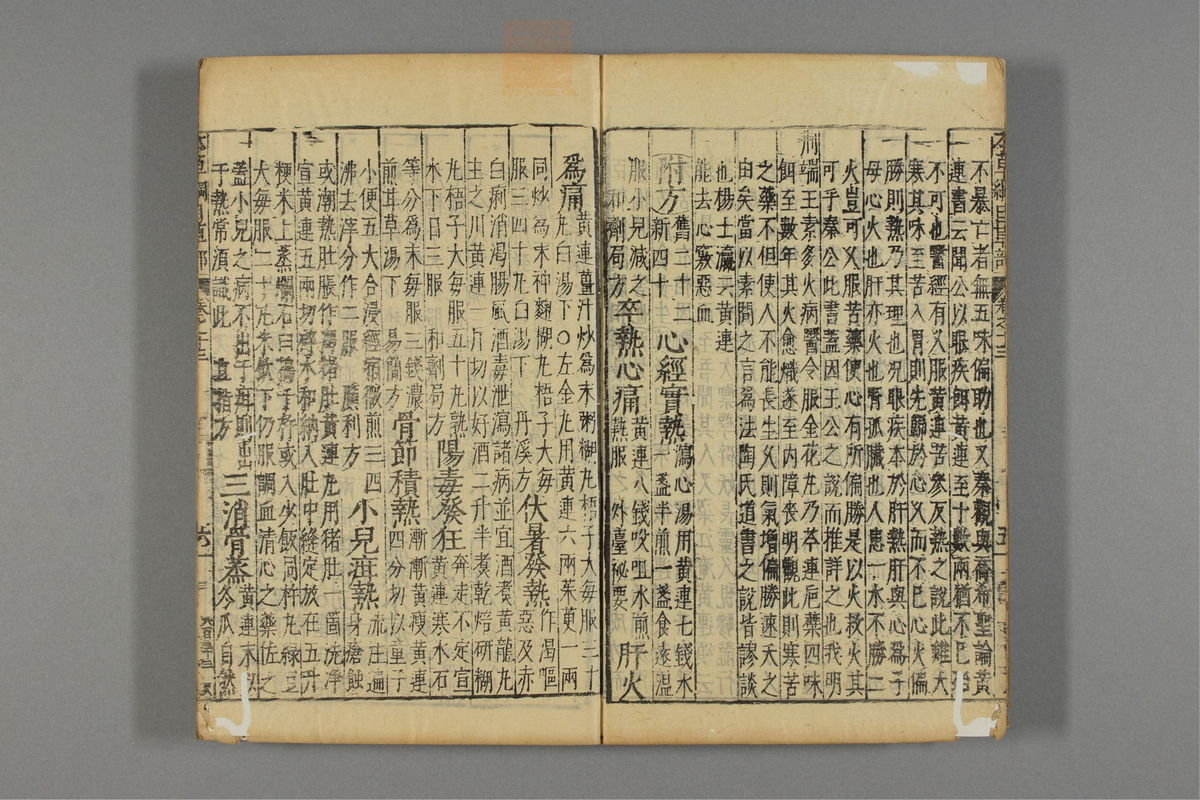 本草綱目草部 卷之十三 五
不暴亡者無五味偏助也又秦觀與喬希聖論黃
連書云聞公以眼疾餌黃連至十數兩猶不已殆
不可也醫經有久服黃連苦參反熱之說此雖大
寒其味至苦入胃則先歸於心久而不已心火偏
勝則熱乃其理也況眼疾本於肝熱肝與心為子
母心火也肝亦火也腎孤臟也人患一水不勝二
火豈可久服苦藥使心有所偏勝是以火救火其
可乎秦公此書蓋因王公之說而推詳之也我明
荊端王素多火病醫令服金花丸乃芩連巵蘗四味
餌至數年其火愈熾遂至内障喪明觀此則寒苦
之藥不但使人不能長生久則氣增偏勝速夭之
由矣當以素問之言爲法陶氏道書之說皆謬談
也楊士瀛云黃連
能去心竅惡血
附方 舊二十二 新四十 心經實熱 瀉心湯用黃連七錢水一盞半煎一盞食遠溫
服小兒減之 和劑局方 卒熱心痛 黃連八錢㕮咀水煎熱服 外臺祕要 肝火
爲痛 黃連薑汁炒爲末粥糊丸梧子大每服三十
丸白湯下○左金丸用黃連六兩茱萸一兩
同炒爲末神麴糊丸梧子大每
服三四十丸白湯下 丹溪方 伏暑發熱 作渴嘔惡及赤
白痢消渴腸風酒毒泄瀉諸病並宜酒煮黃龍丸
主之川黃連一斤切以好酒二升半煮乾焙研糊
丸梧子大每服五十丸熟
水下日三服 和劑局方 陽毒發狂 奔走不定宣黃連寒水石
等分爲末每服三錢濃
煎甘草湯下 易簡方 骨節積熱 漸漸黃瘦黃連四分切以童子
小便五大合浸經宿微煎三四
沸去滓分作二服 廣利方 小兒疳熱 流注遍身瘡蝕
或潮熱肚脹作渴豬肚黃連丸用猪肚一箇洗淨
宣黃連五兩切碎水和納入肚中縫定放在五升
粳米上蒸爛石臼擣千杵或入少飯同杵丸綠豆
大每服二十丸米飲下仍服調血清心之藥佐之
蓋小兒之病不出于疳則出
于熱常須識此 直指方 三消骨蒸 黃連末以冬瓜自然
本草綱目草部 卷之十三 六